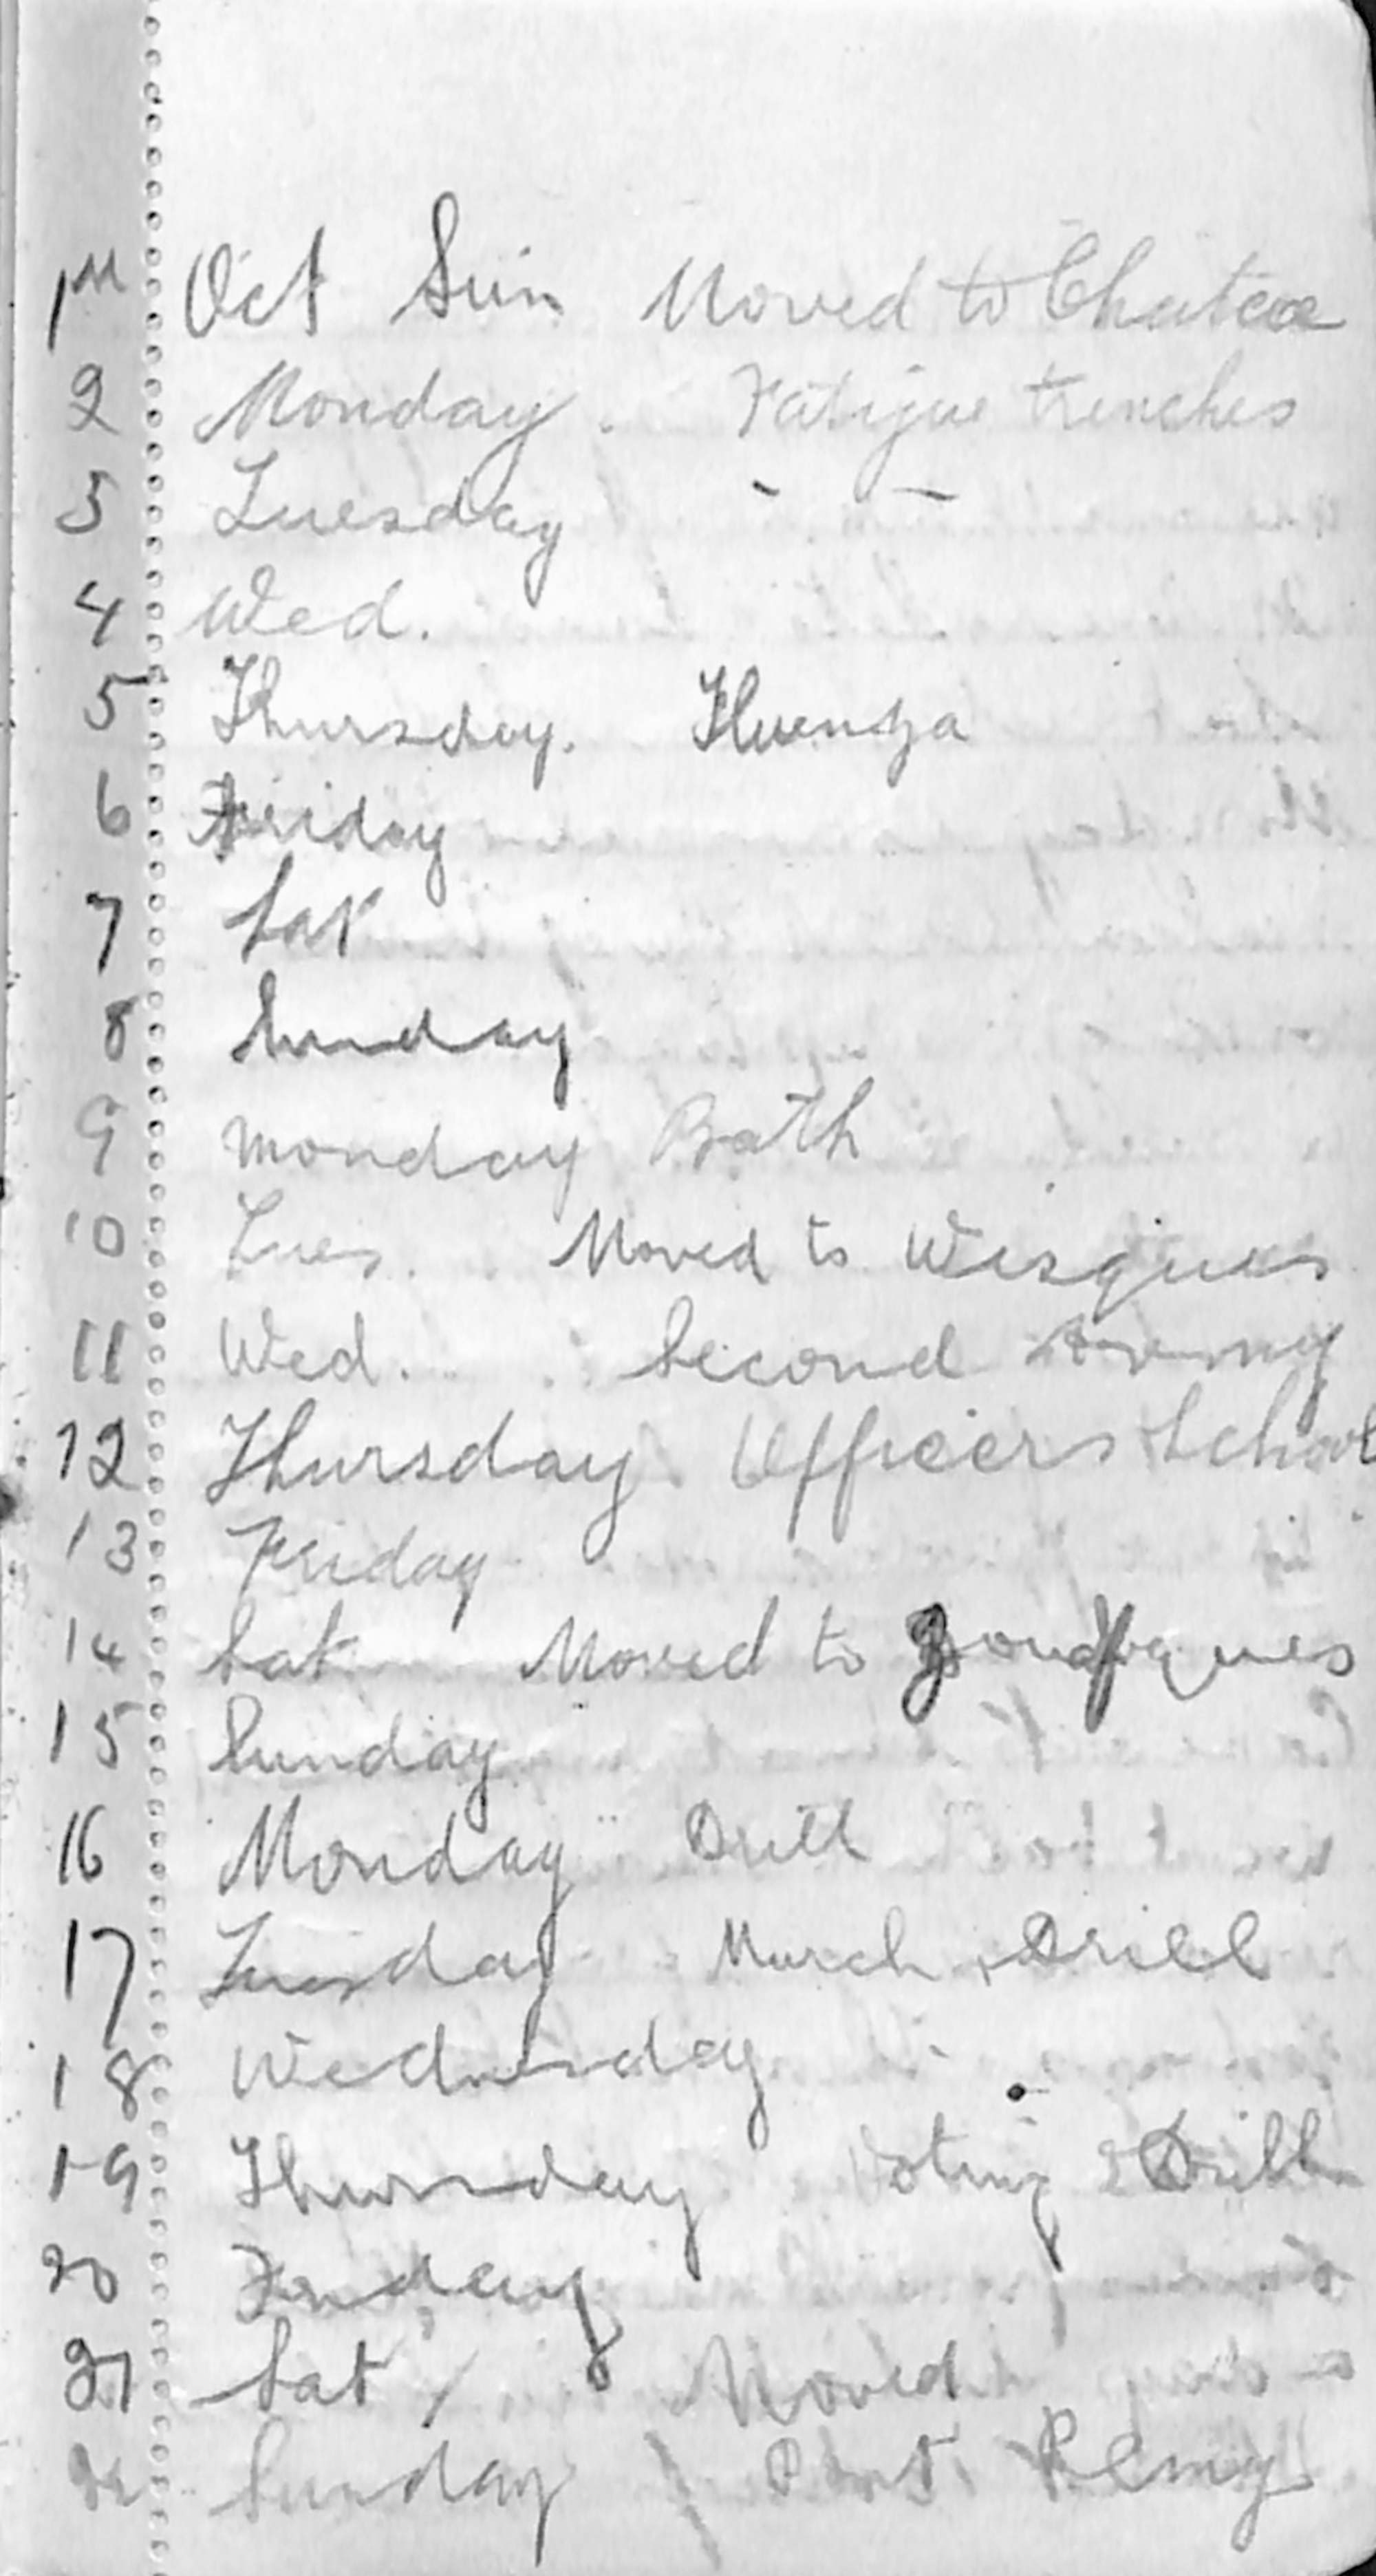 1st Oct Sun Moved to Chatea
2 Monday. Fatigue trenches
3 Tuesday - -
4 Wed.
5 Thursday. Fluenza
6 Friday
7 Sat
8 Sunday
9 Monday Bath
10 Tues. Moved to Wisques
11 Wed. Second Army
12 Thursday Officers School
13 Friday
14 Sat Moved to
15 Sunday
16 Monday Drill
17 Tuesday March, Drill
18 Wednesday
19 Thursday Voting & Drill
20 Friday
21 Sat Moved
22 Sunday Pont Remy